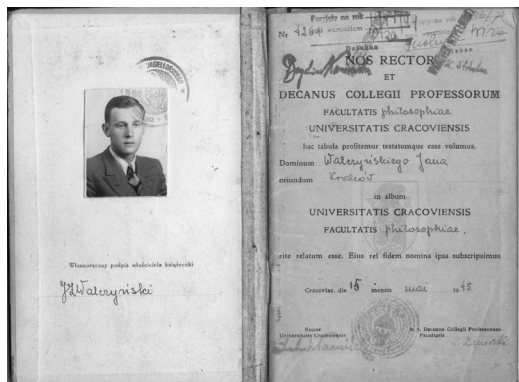 JAGIELLOŃSKI
Własnoręczny podpis właściciela książeczki
JZWaleryński
Przyjęty na rok
Nr 4269
Dziekan
NOS RECTOR
ET
DECANUS COLLEGII PROFESSORUM
FACULTATIS philosophiae
UNIVERSITATIS CRACOVIENSIS
hac tabula profitemur testatumque esse volumus.
Dominum Waleryńskiego Jana
oriundum Kraków
in album
UNIVERSITATIS CRACOVIENSIS
FACULTATIS philosophiae.
rite relatum esse. Eius rei fidem nomina ipsa subscripsimus
Cracoviae, die 15 mensis mai 1945
Rector
Universitatis Cracoviensis
h. a. Decanus Collegii Professorum
Facultatis